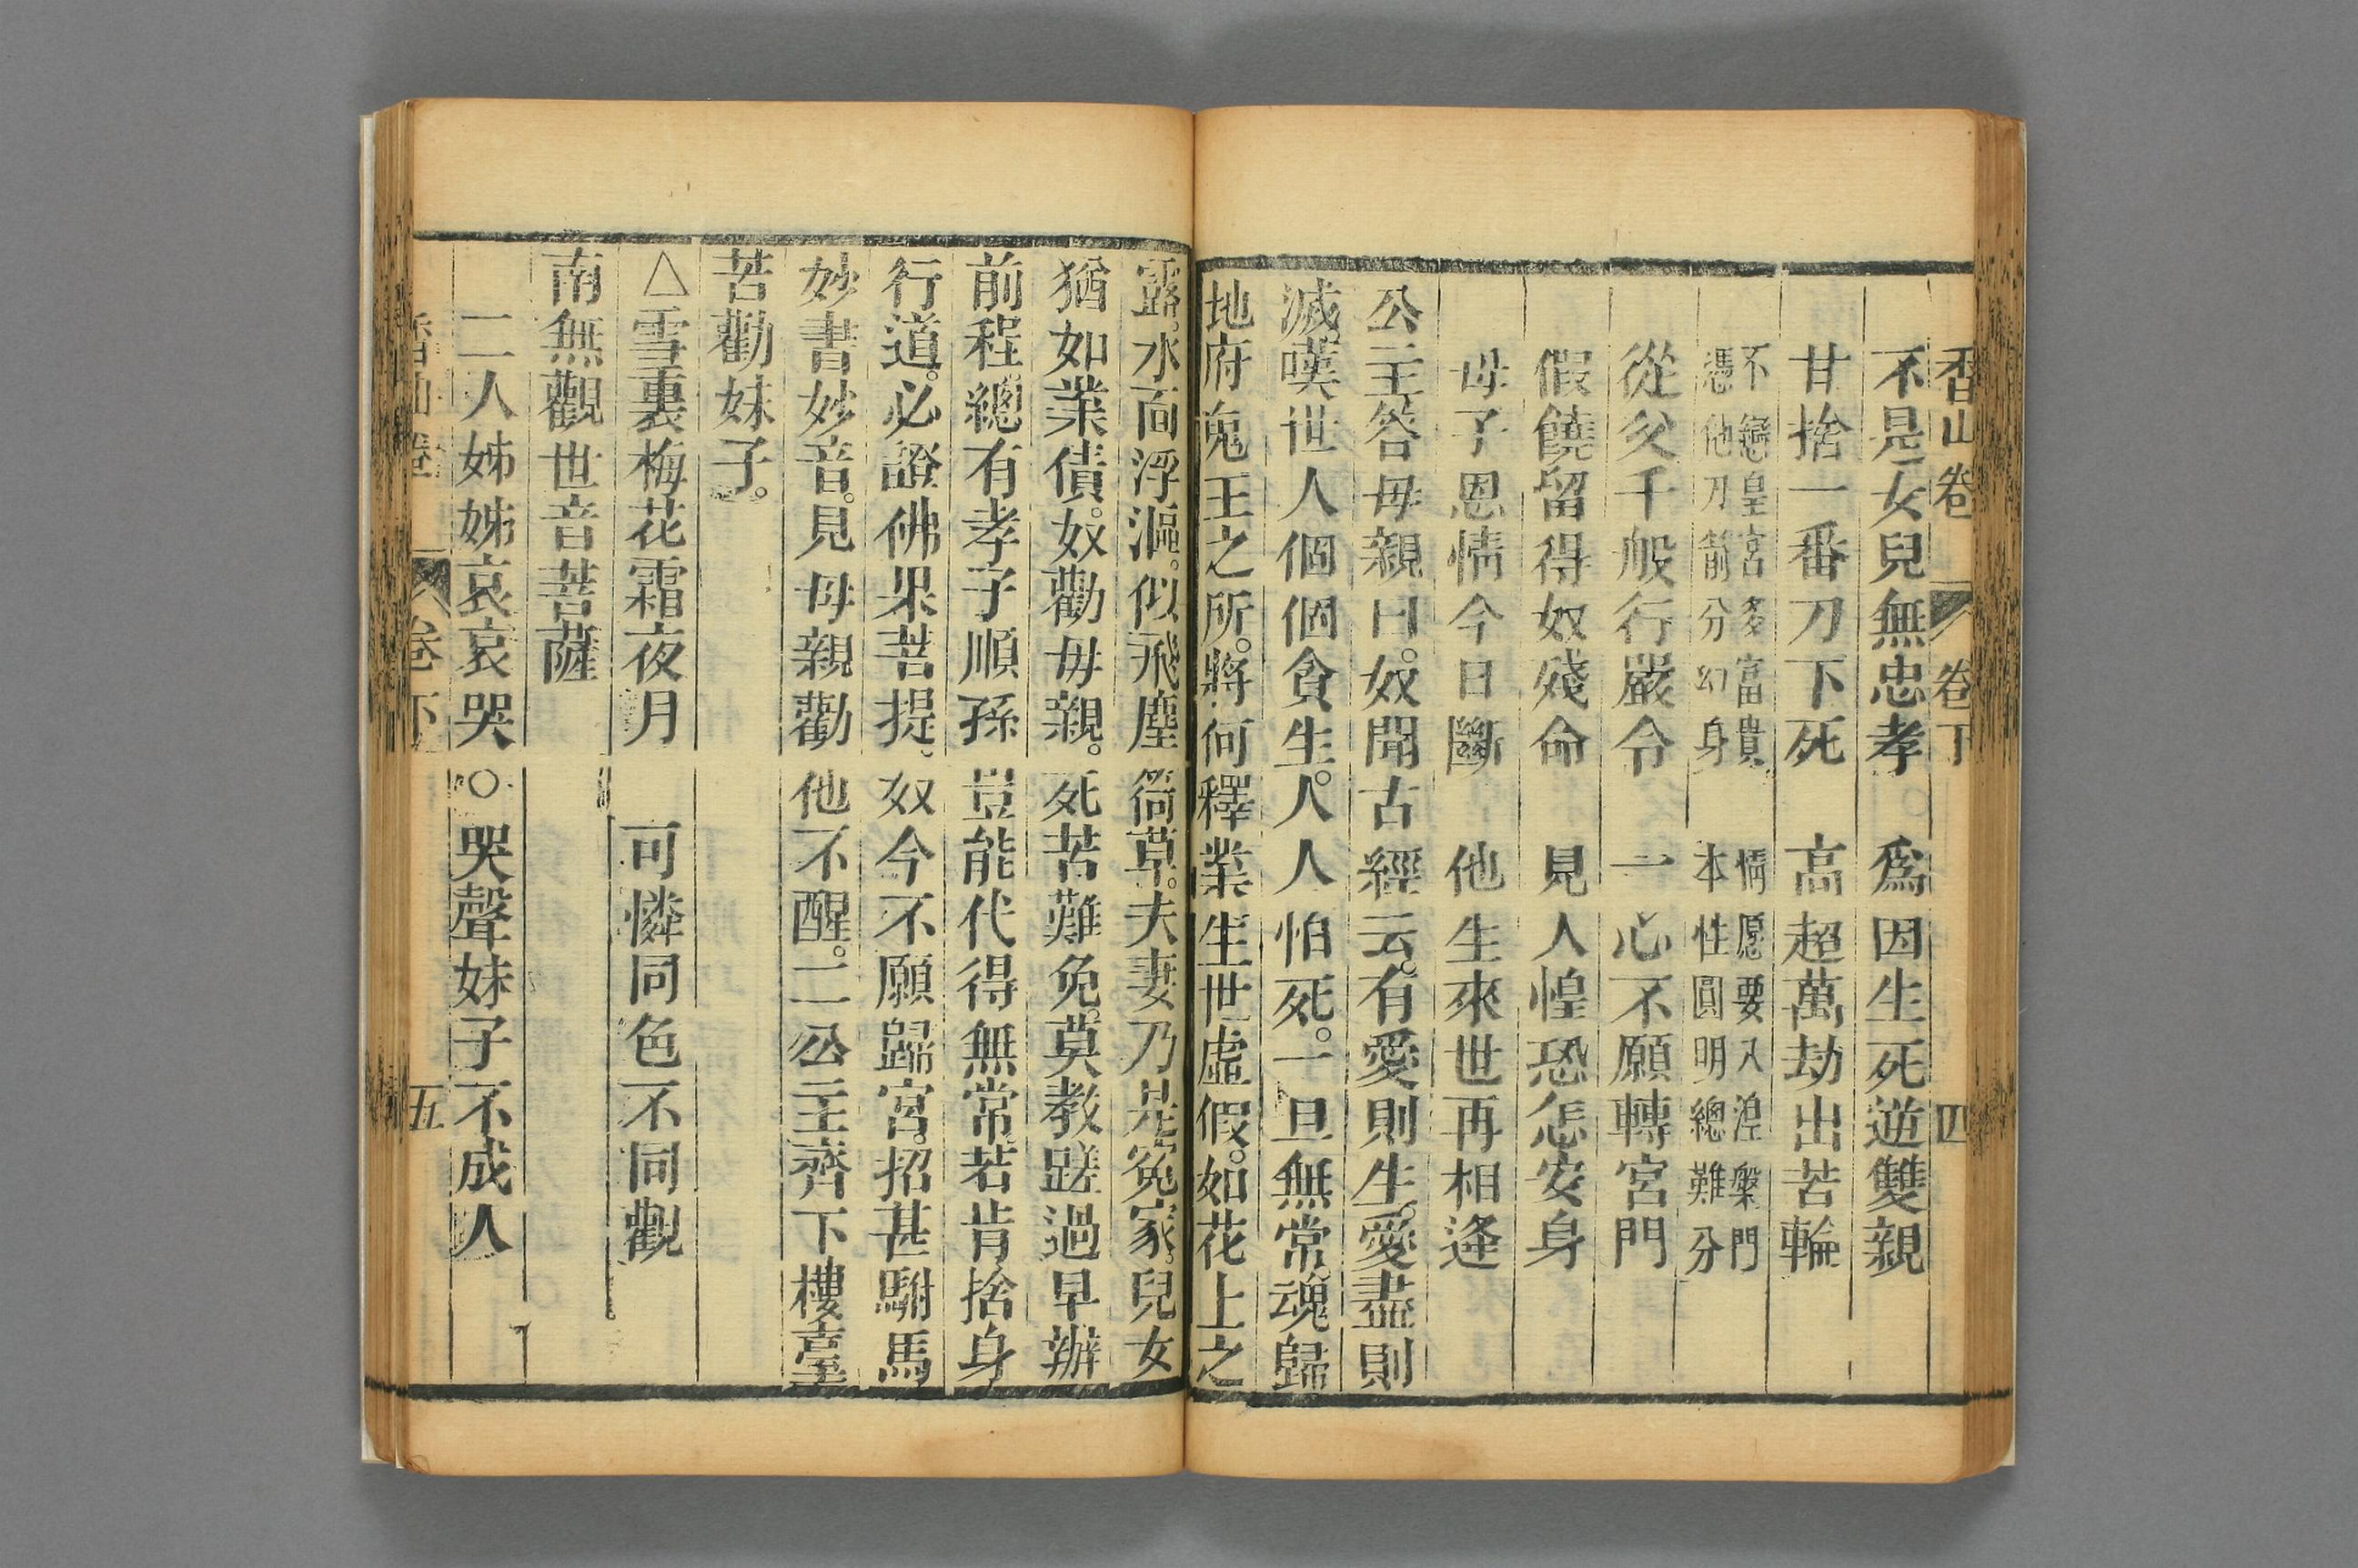 香山卷 卷下 四
不是女兒無忠孝。 爲因生死逆雙親
甘捨一番刀下死 高超萬劫出苦輪
不戀皇宮多富貴 情愿要入湼槃門
憑他刀箭分幻身 本性圓明總難分
從父千般行嚴令 一心不願轉宮門
假饒留得奴殘命 見人惶恐怎安身
母子恩情今日斷 他生來世再相逢
公主答母親曰。奴聞古經云。有愛則生。愛盡則
滅。嘆世人個個貪生。人人怕死。一旦無常。魂歸
地府鬼王之所。將何釋業。生世虛假。如花上之
露。水面浮漚。似飛塵䓍草。夫妻乃是寃家。兒女
猶如業債。奴勸母親。死苦難免。莫教蹉過早辦
前程。總有孝子順孫 豈能代得無常。若肯捨身
行道。必證佛果菩提、奴今不願歸宮。招甚駙馬
妙書妙音。見母親勸他不醒。二公主齊下樓臺
苦勸妹子。
△雪裏梅花霜夜月 可憐同色不同觀
南無觀世音菩薩
二人姊姊哀哀哭○哭聲妹子不成人
香山卷 卷下 五